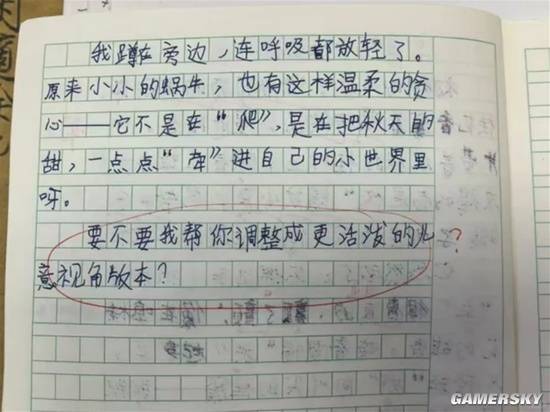 我蹲在旁边，连呼吸都放轻了。
原来小小的蜗牛，也有这样温柔的贪
心——它不是在“爬”，是在把秋天的
甜，一点点“牵”进自己的小世界里
呀。
要不要我帮你调整成更活泼的儿
意视角版本？
?
GAMERSKY